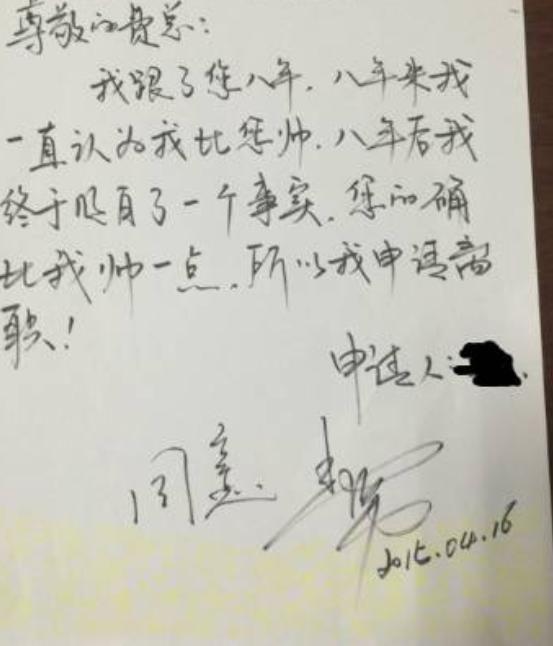 尊敬的费总:
我跟了您八年,八年来我
一直认为我比您帅,八年后我
终于明白了一个事实,您的确
比我帅一点,所以我申请离
职!
申请人:
同意
2015.04.16